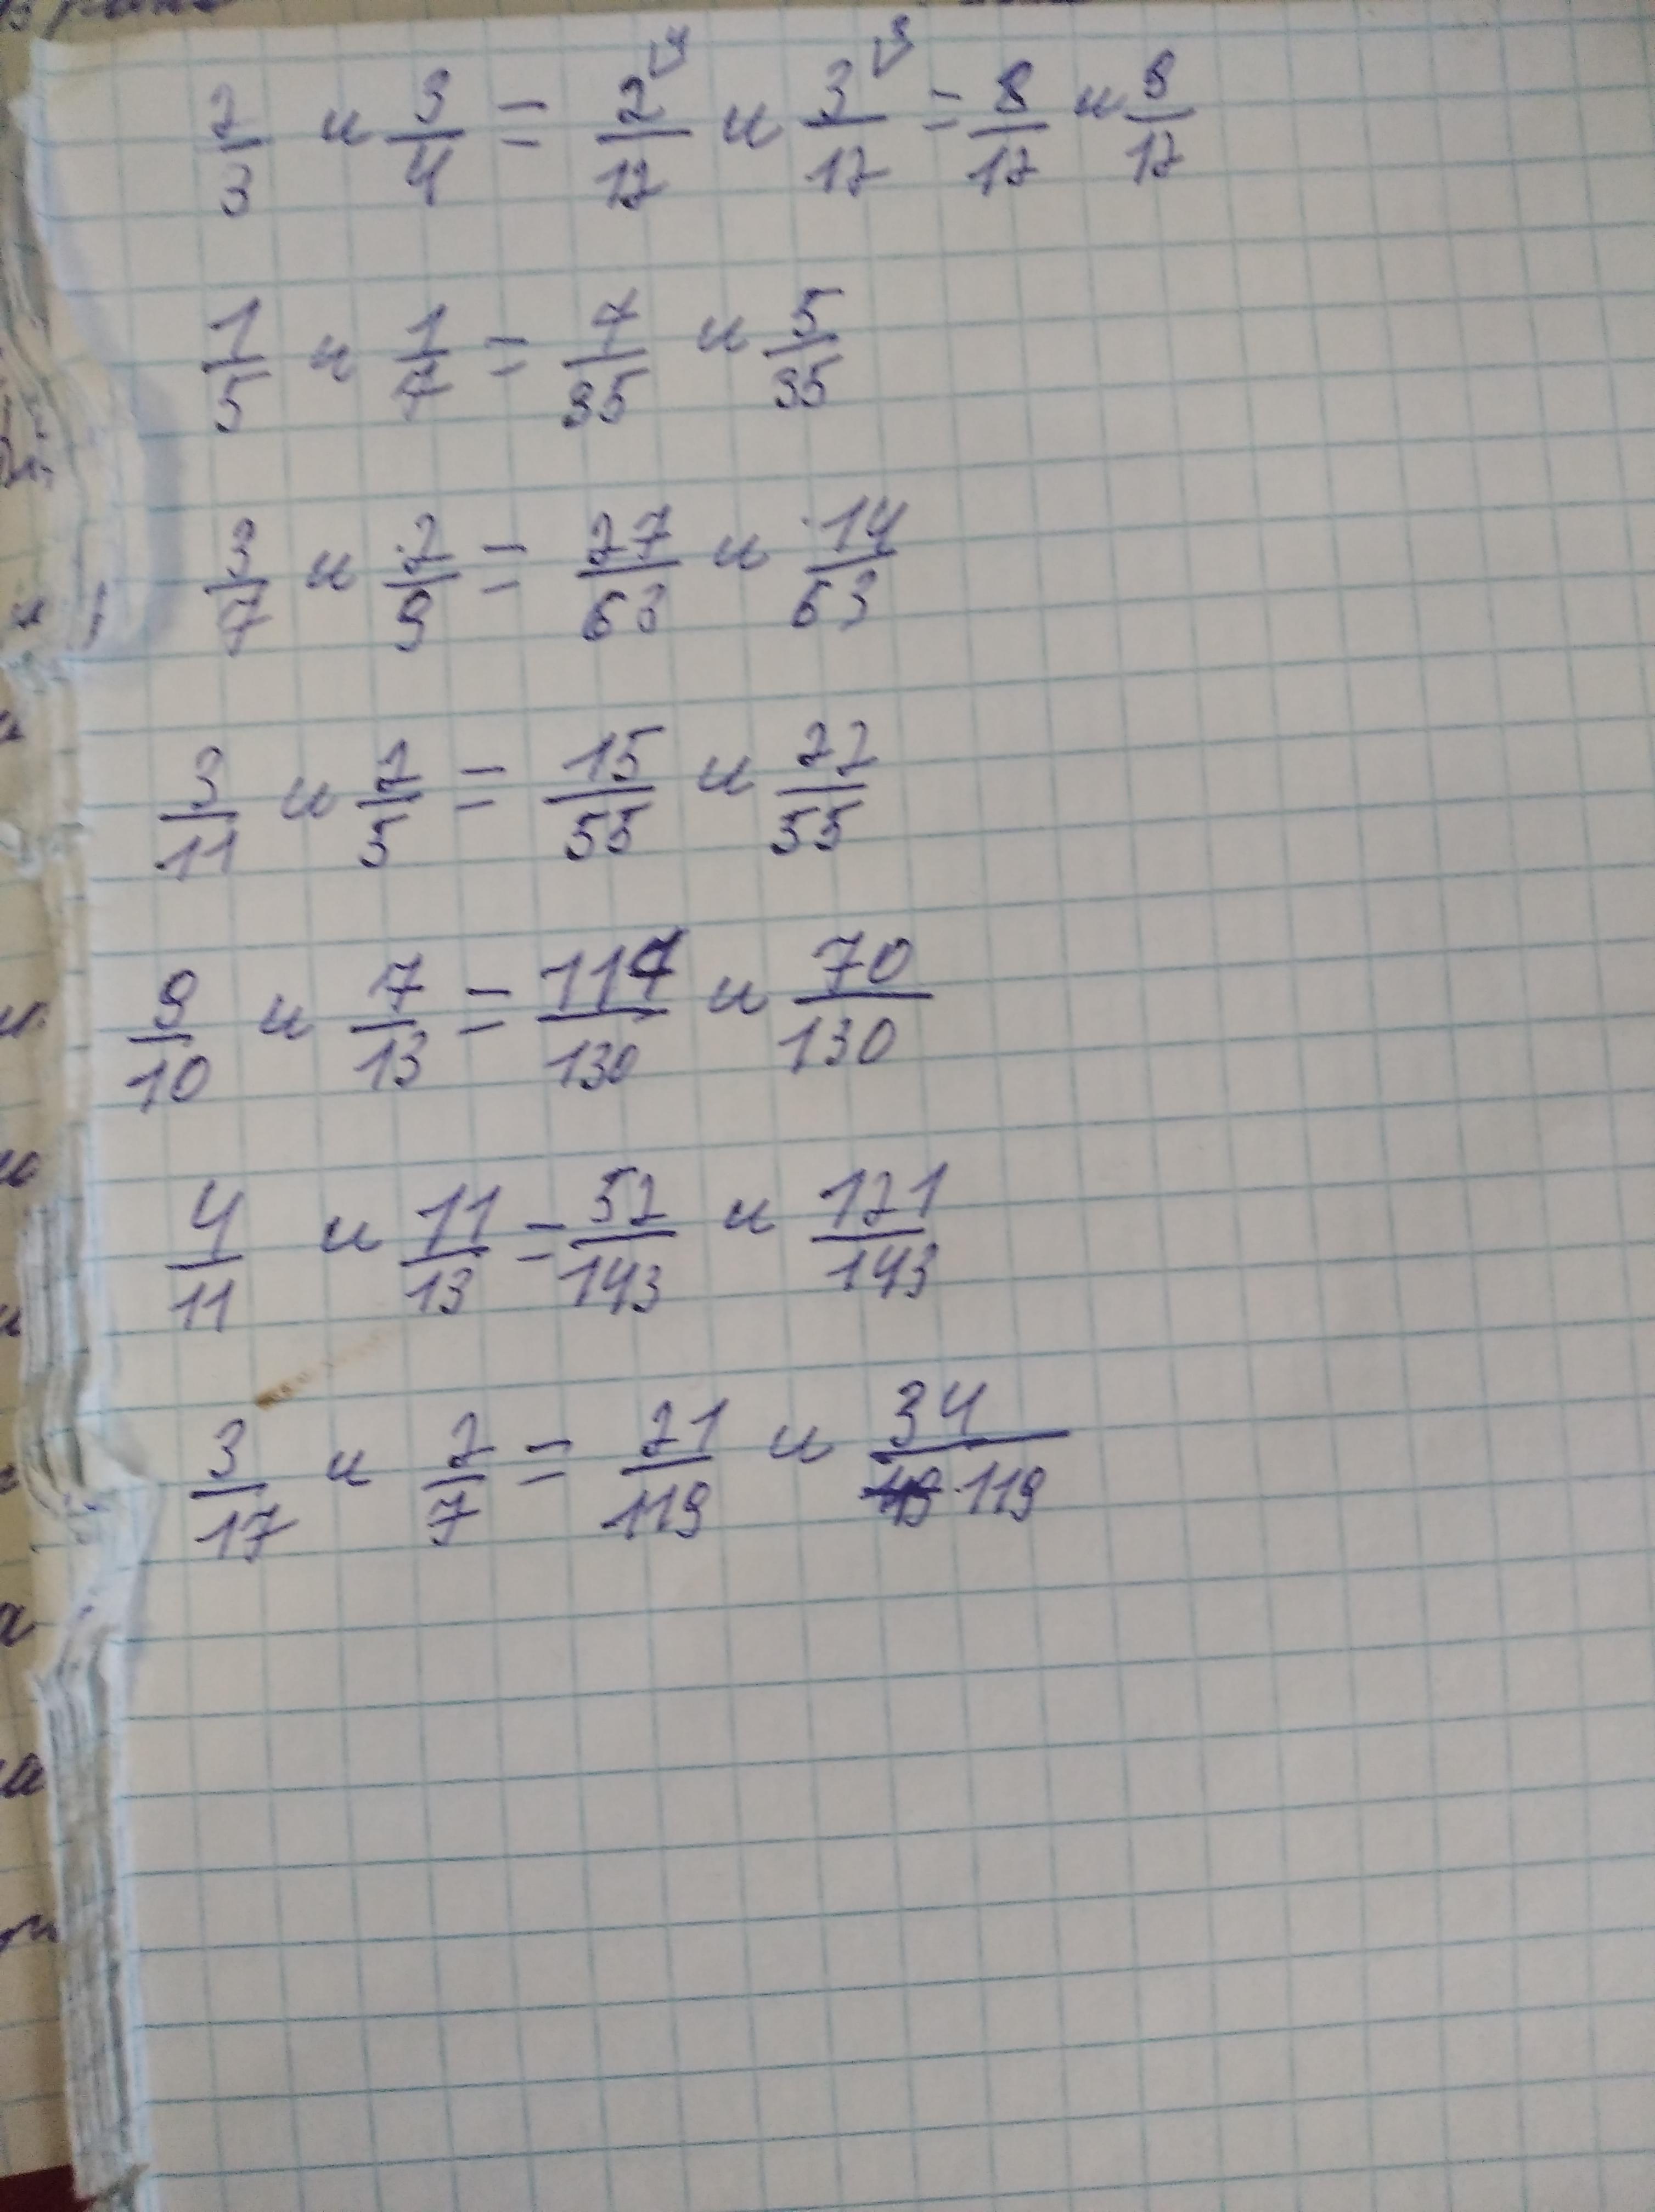 2/3 и 3/4 = 2⌞4/12 и 3⌞3/12 = 8/12 и 9/12
1/5 и 1/7 = 7/35 и 5/35
3/7 и 2/9 = 27/63 и 14/63
3/11 и 2/5 = 15/55 и 22/55
9/10 и 7/13 = 117/130 и 70/130
4/11 и 11/13 = 52/143 и 121/143
3/17 и 2/7 = 21/119 и 34/119